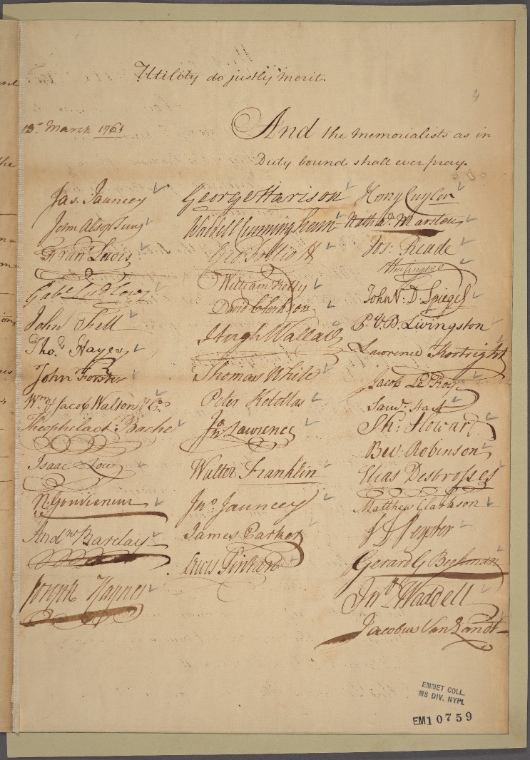 Utility do justly merit.
And the Memorialists as in
Duty bound shall ever pray.
Jas. Jauncey
John Alsop Junr
Fran. Lewis
Gabl. Ludlow
John Thell
Thos. Hayes
John
Wm. & Jacob Walton & Co
Theophilact Bache
Isaac Low
N Gouverneur
Andw Barclay
Joseph Haynes
George Harison
Waddell Cunningham
William Kelly
Hugh Wallace
Thomas White
Peter Ketteltas
Jn. Lawrence
Walter Franklin
Jno. Jauncey
James Parker
Lewis Pintard
Henry Cuyler
Nathl. Marston
Jos. Reade
John V. D. Spiegel
P V B Livingston
Lawrence Kortright
Jacob Le Roy
Bev. Robinson
Elias Desbrosses
Matthew Clarkson
Gerard G Beekman
Jno Waddell
Jacobus Van Zandt
EMMET COLL.
MS DIV. NYPL
EM10759